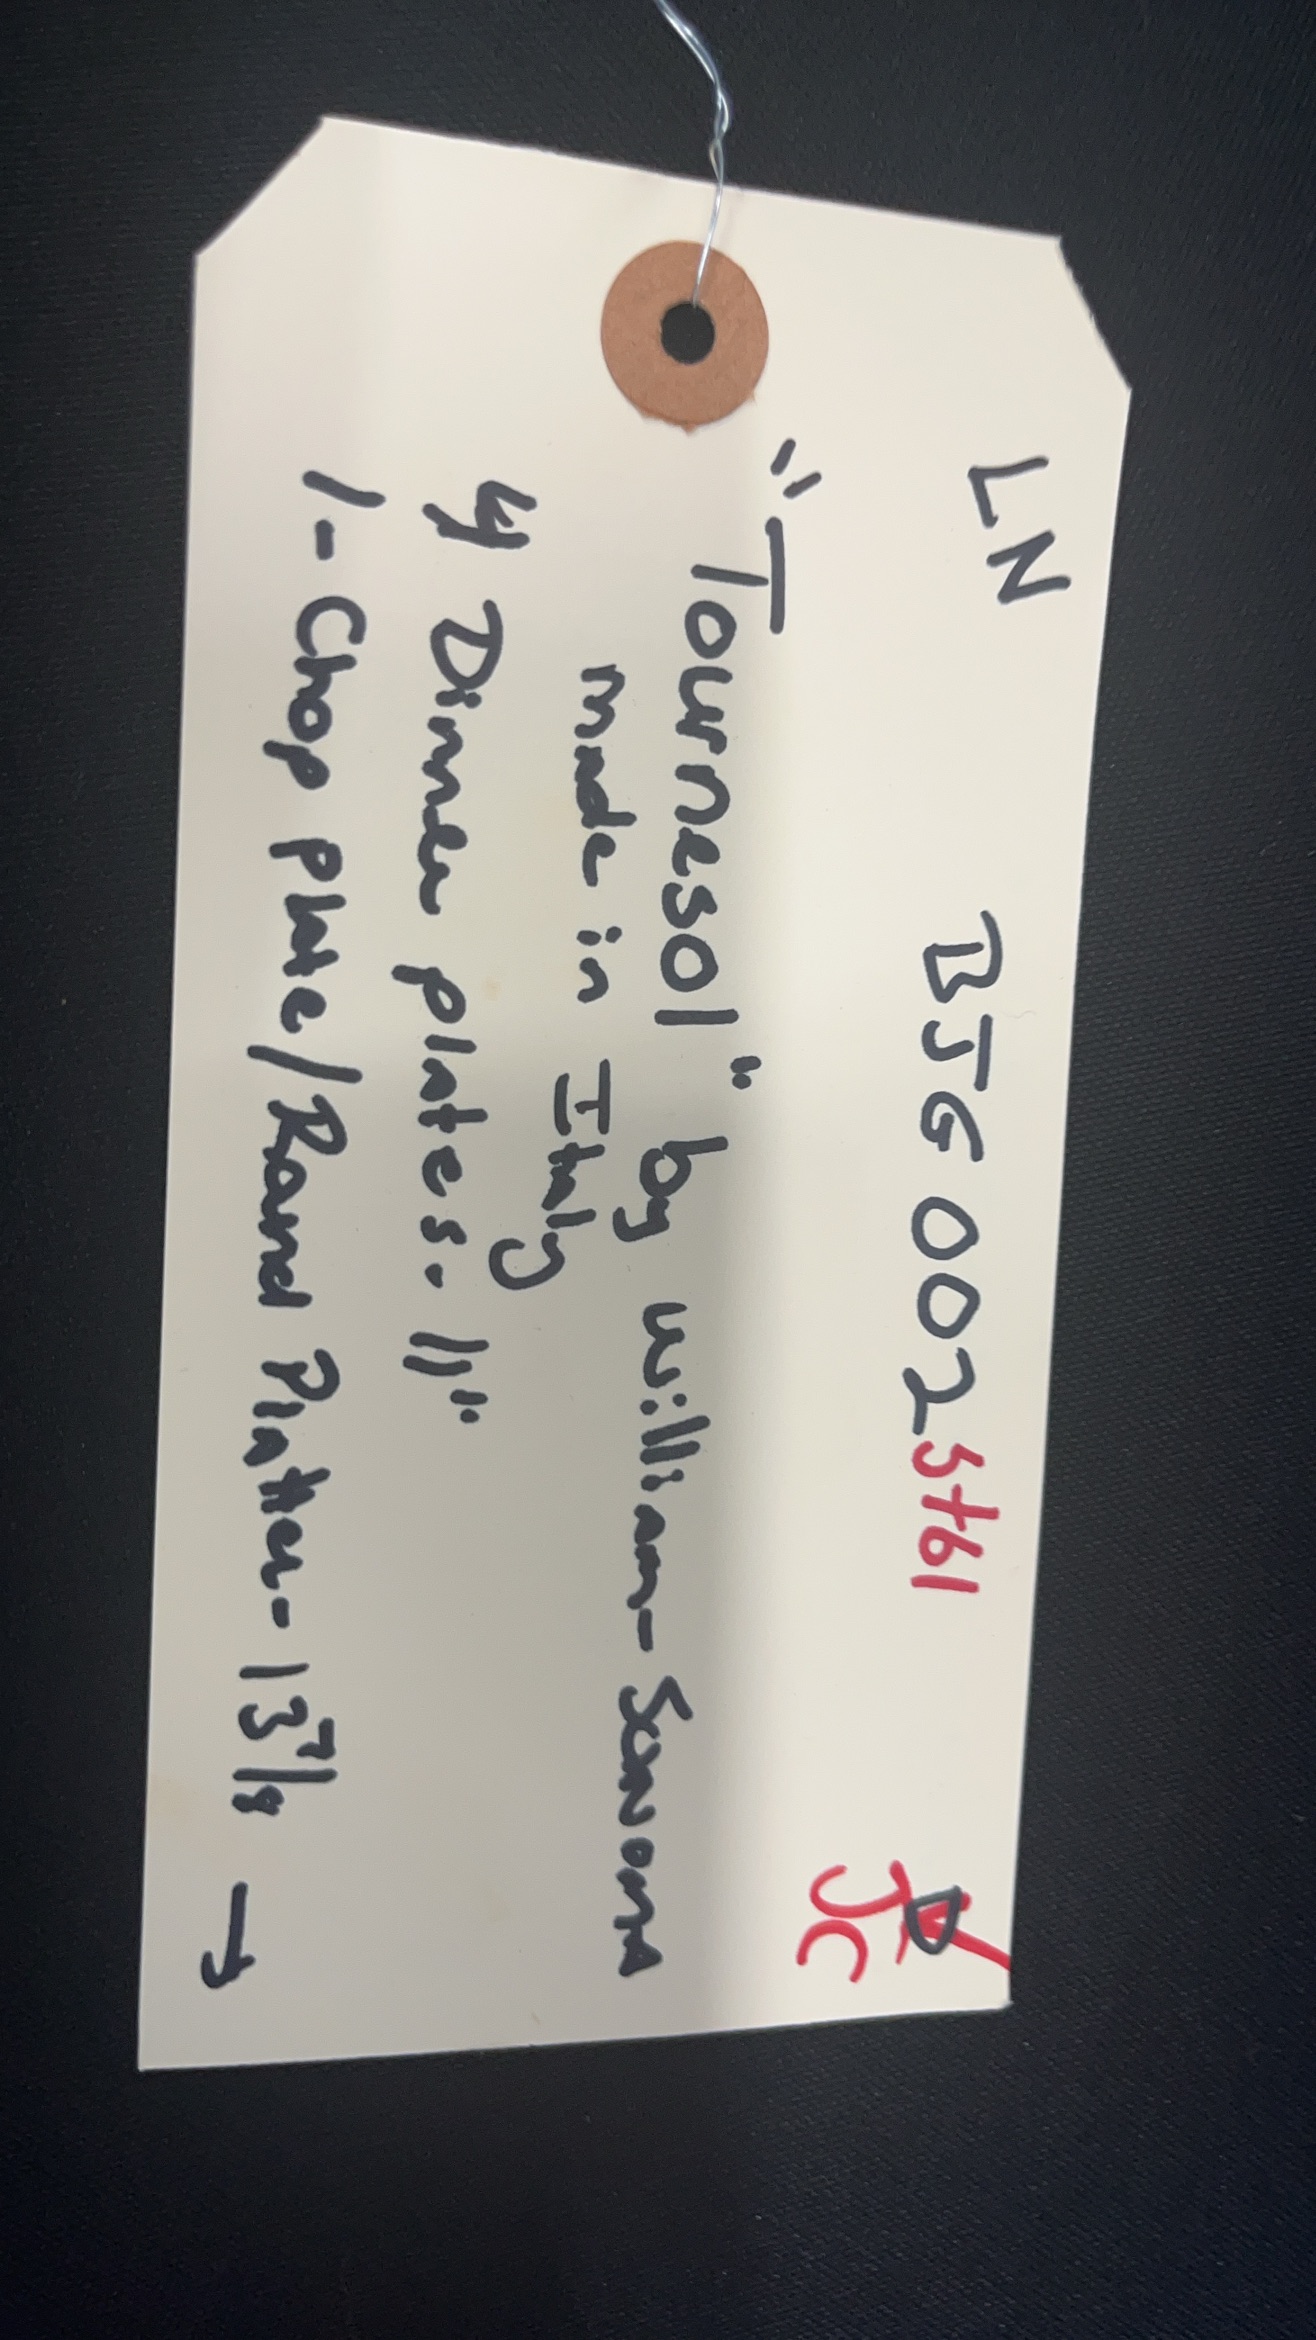 LN BJG 0025461 D
JC
"T
Tournesol" by William-Sonoma
made in Italy
4 Dinner plates. 11"
1-Chop plate/Round Platter-13 7/8 →